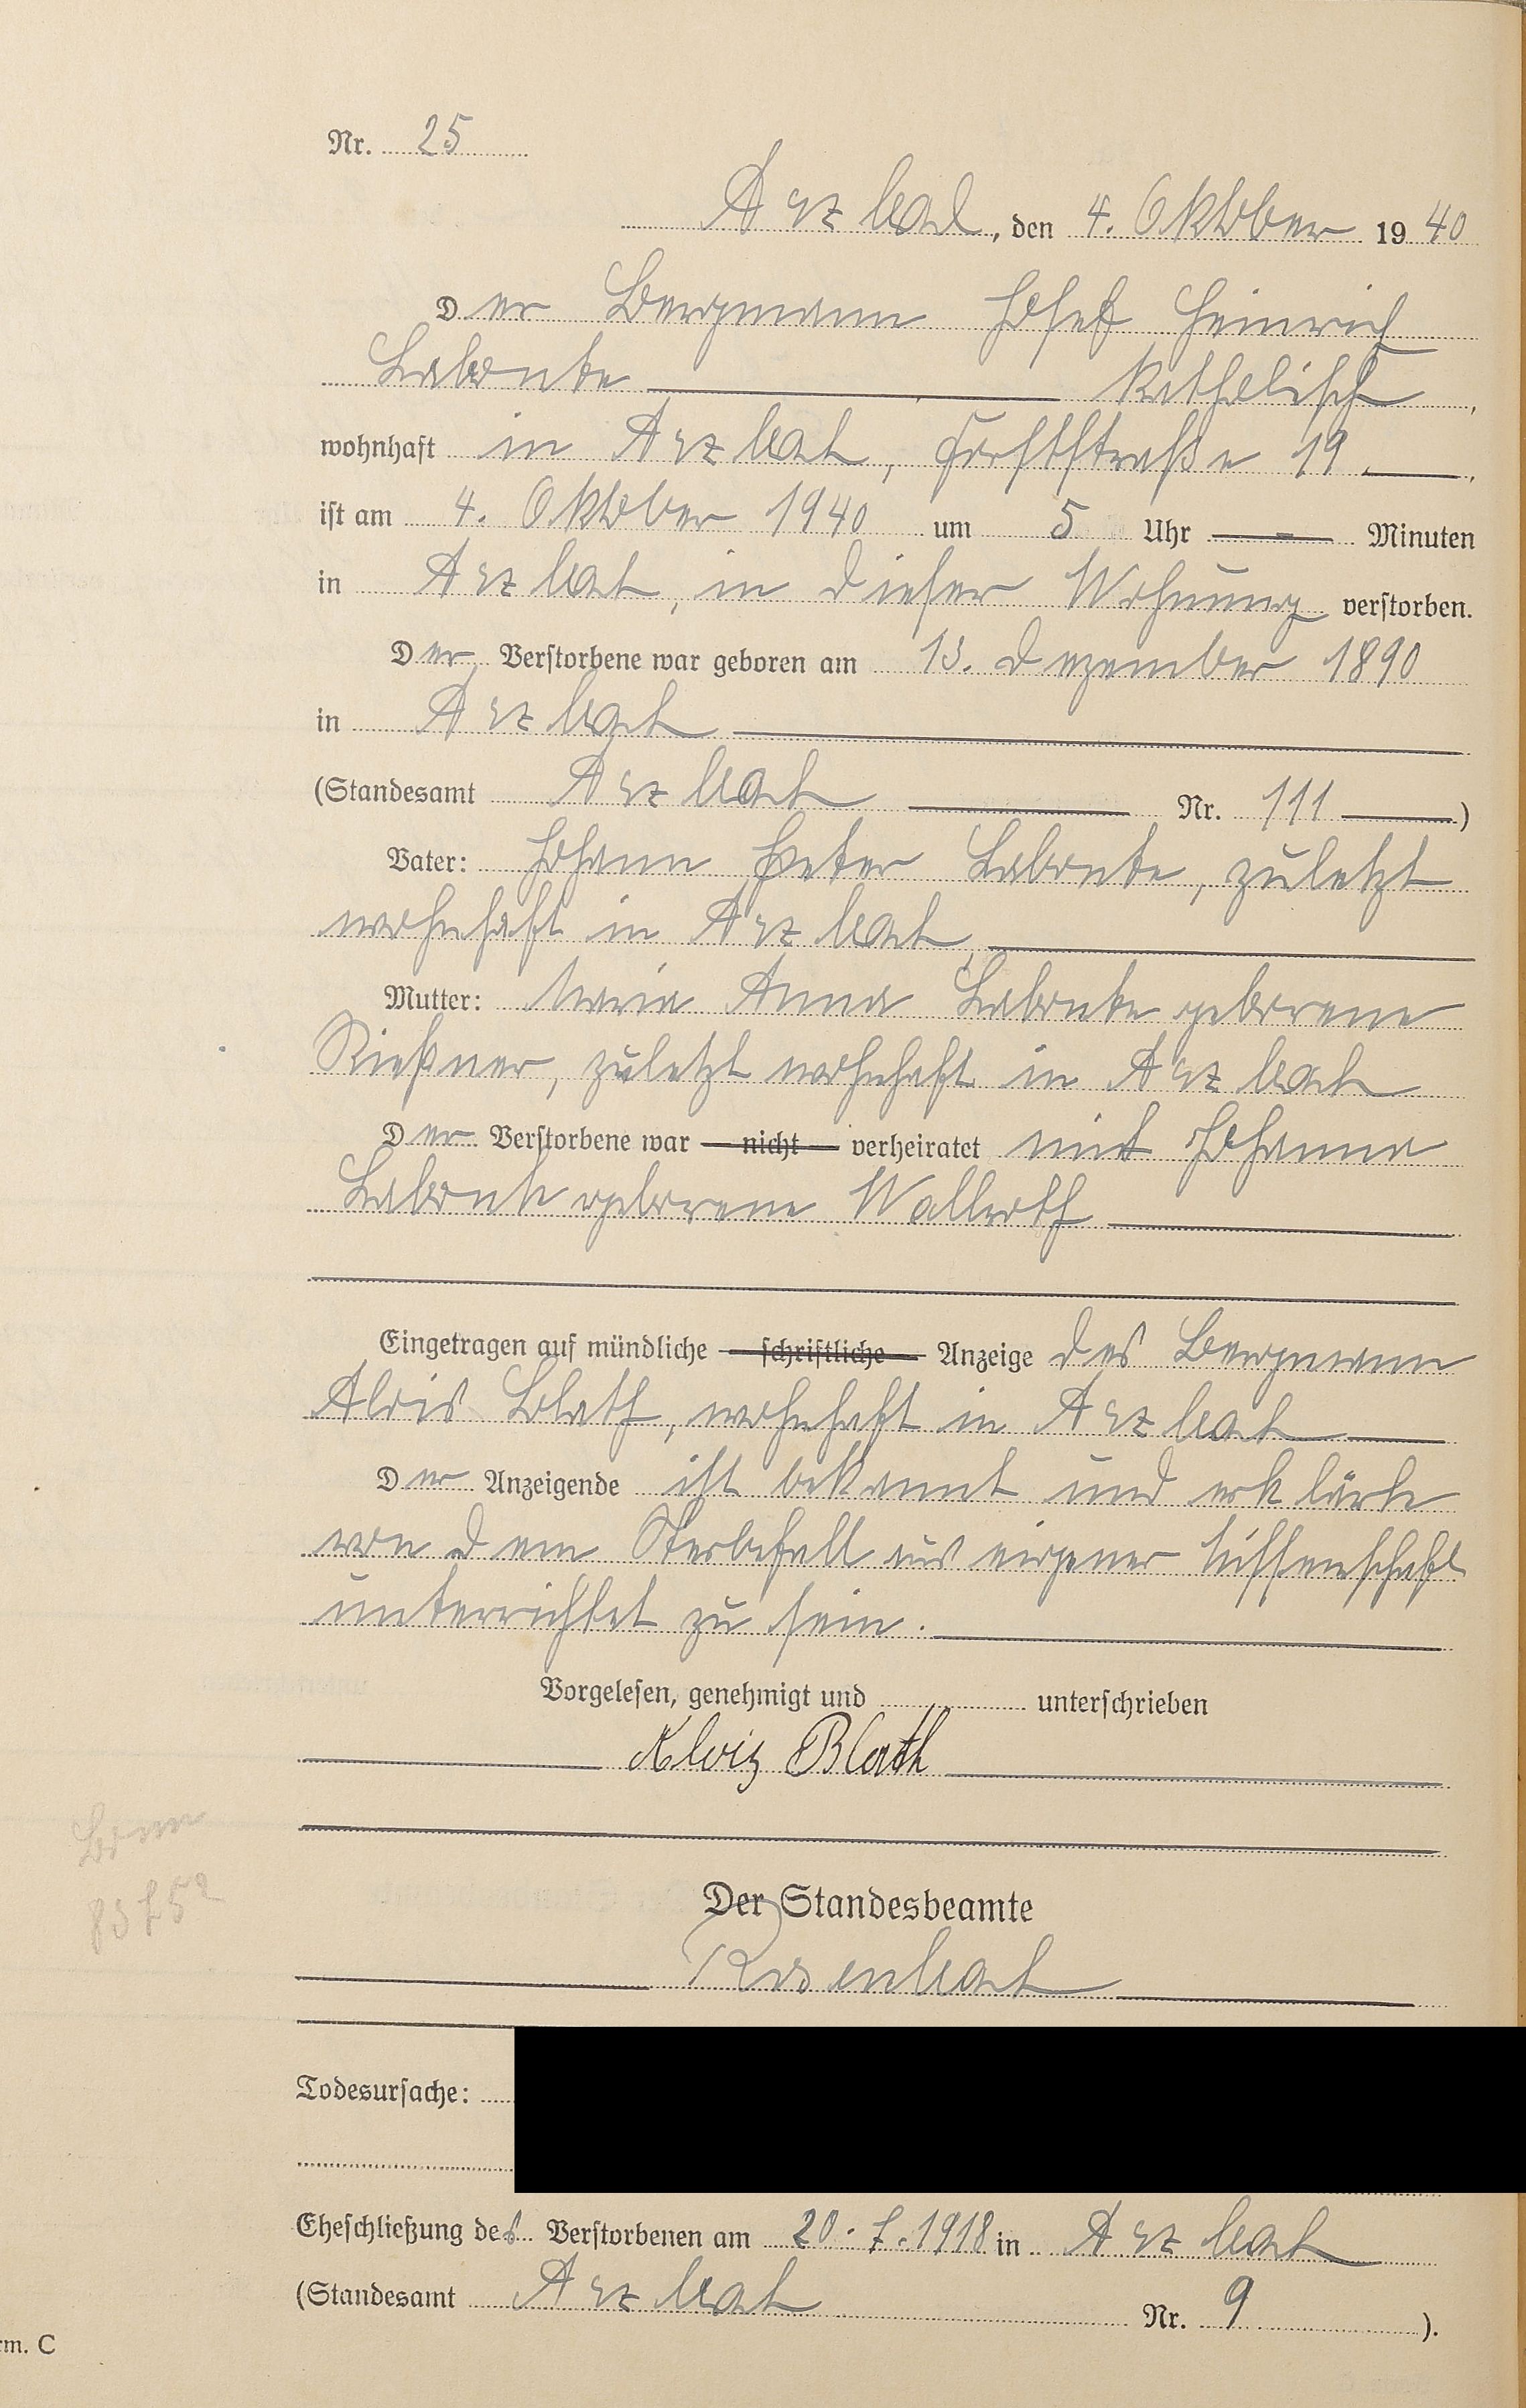 Nr. 25
Arzbach, den 4. Oktober 1940
Der Bergmann Josef Heinrich
Labonte katholisch,
wohnhaft in Arzbach, Forststraße 19,
ist am 4. Oktober 1940 um 5 Uhr Minuten
in Arzbach, in dieser Wohnung verstorben.
Der Verstorbene war geboren am 13. Dezember 1890
in Arzbach
(Standesamt Arzbach Nr. 111)
Vater: Johann Peter Labonte, zuletzt
wohnhaft in Arzbach,
Mutter: Maria Anna Labonte geborene
Kießner, zuletzt wohnhaft in Arzbach
Der Verstorbene war nicht verheiratet mit Johanna
Labonte geborene Wallroth
Eingetragen auf mündliche schriftliche Anzeige des Bergmann
Alois Blath, wohnhaft in Arzbach
Der Anzeigende ist bekannt und erklärte
von dem Sterbefall aus eigener Wissenschaft
unterrichtet zu sein.
Vorgelesen, genehmigt und unterschrieben
Alois Blath
Der Standesbeamte
Rosenbach
Todesursache:
Eheschließung des Verstorbenen am 20.7.1918 in Arzbach
(Standesamt Arzbach Nr. 9).
rm. C